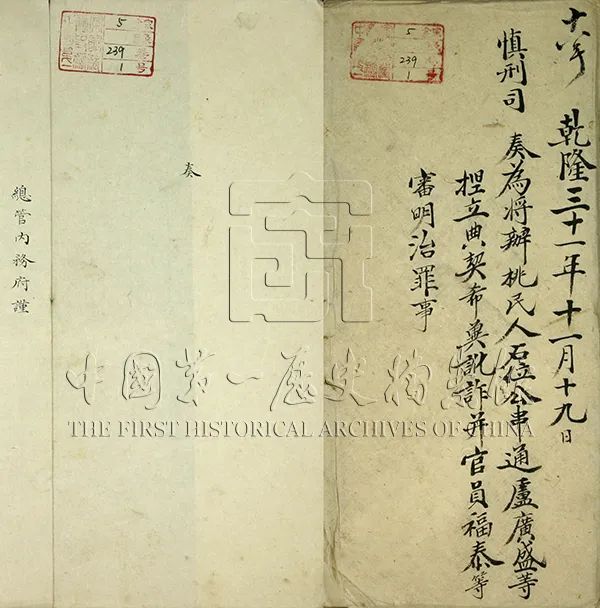 乾隆三十一年十一月十九日
慎刑司 奏為将辦桃民人石位公串通盧廣盛等
捏立典契希冀訛詐并官員福泰等
審明治罪事
5
239
1
奏
總管內務府謹
5
239
1
中國第一歷史檔案館
THE FIRST HISTORICAL ARCHIVES OF CHINA